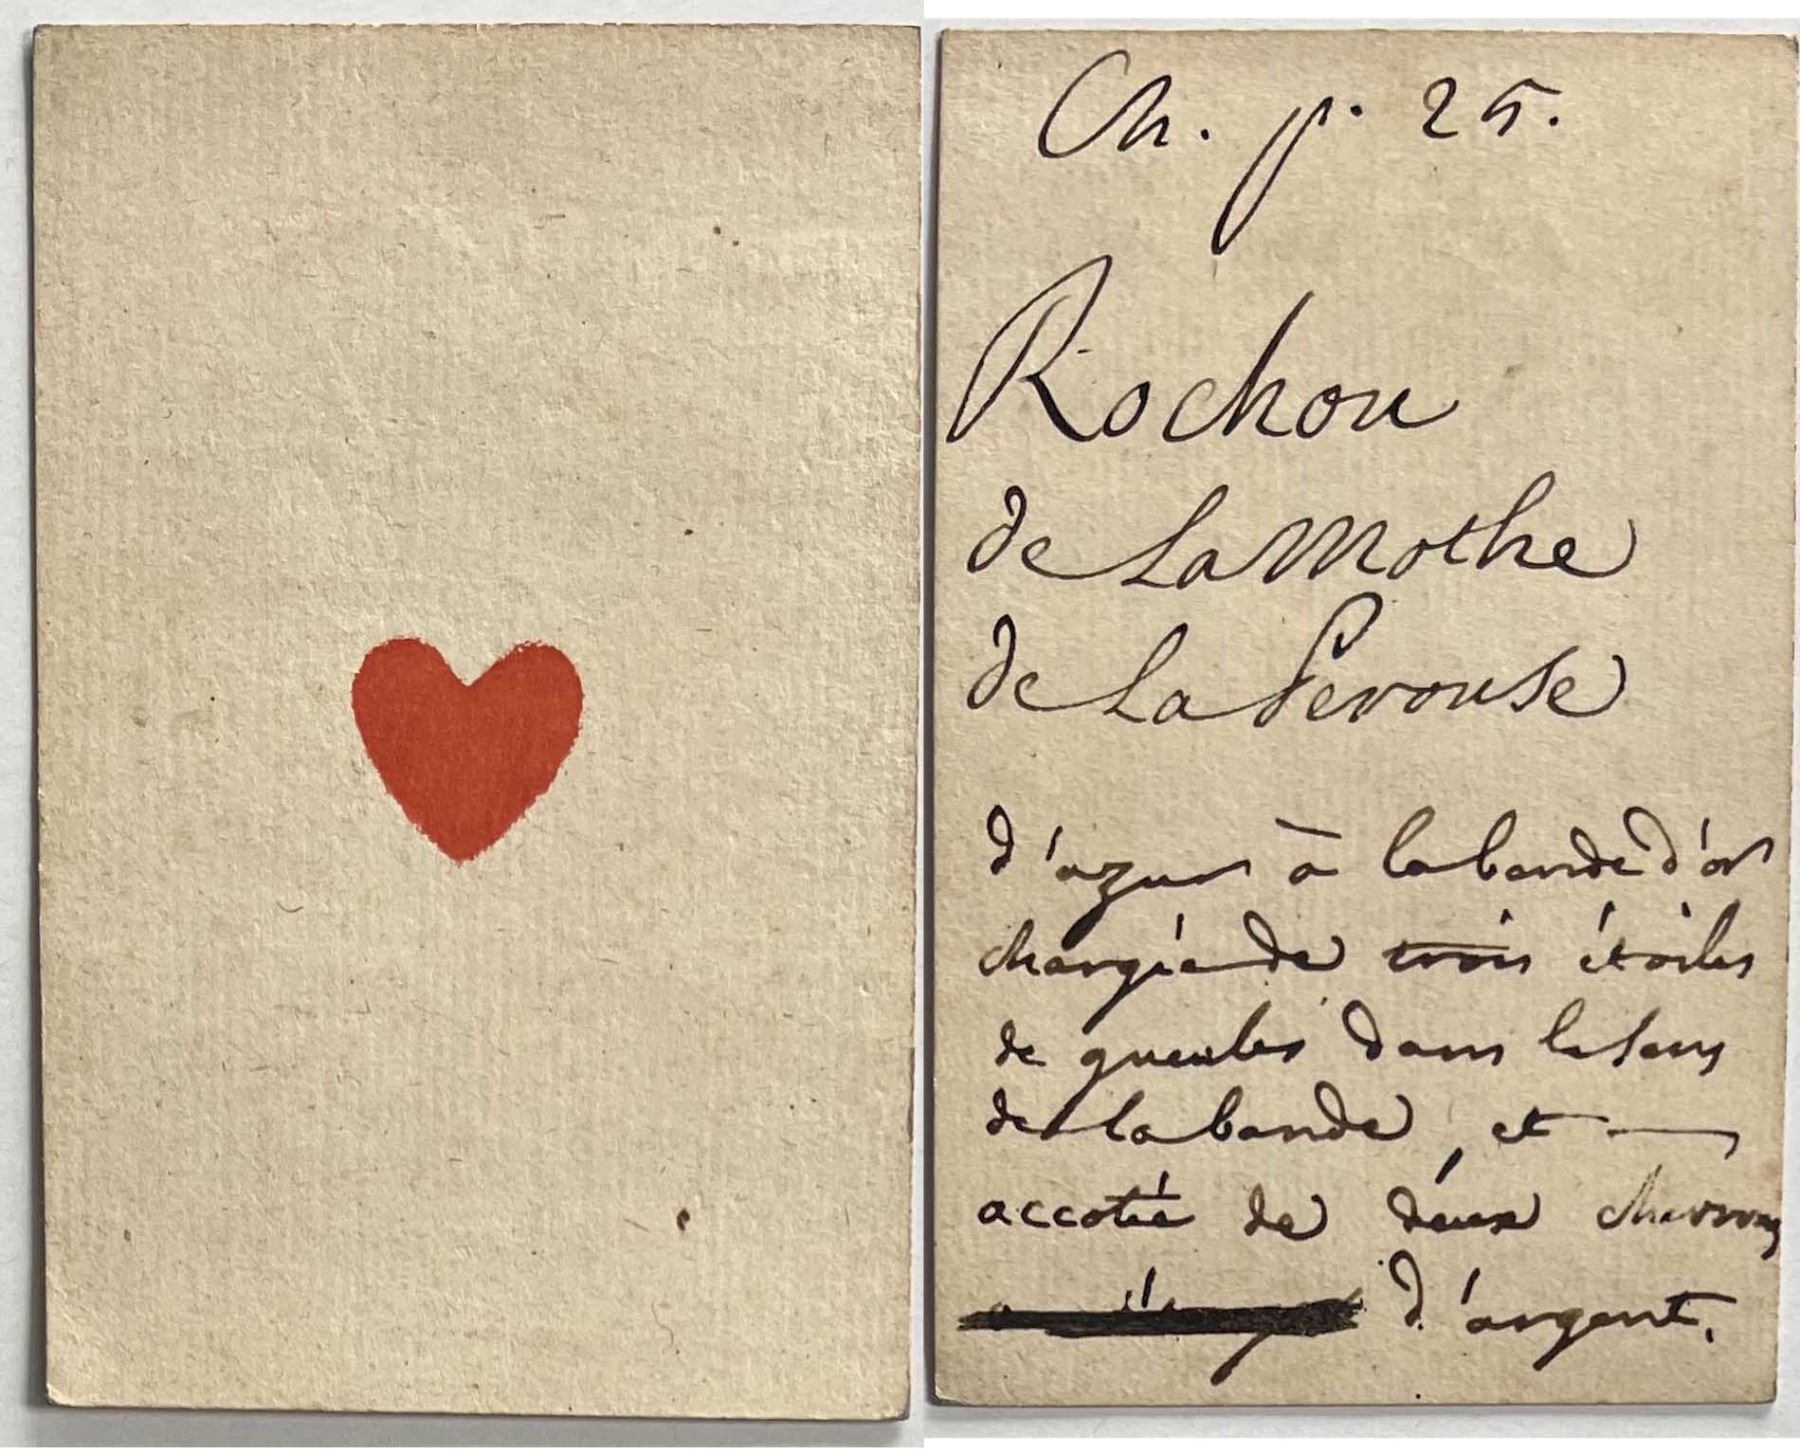 Ch. p. 25.
Rochon
de La Mothe
de La Perouse
d'azur à la bande d'or
chargée de trois étoiles
de gueules dans le sens
de la bande, et
accotée de deux chevrons
d'argent.